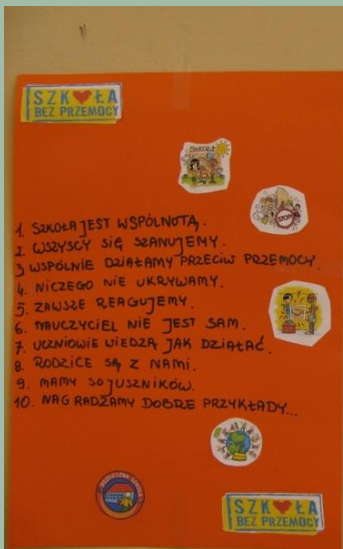 SZK❤ŁA
BEZ PRZEMOCY
SZKOŁA
STOP!
1. SZKOŁA JEST WSPÓLNOTĄ.
2. WSZYSCY SIĘ SZANUJEMY.
3 WSPÓLNIE DZIAŁAMY PRZECIW PRZEMOCY.
4. NICZEGO NIE UKRYWAMY.
5. ZAWSZE REAGUJEMY.
6. NAUCZYCIEL NIE JEST SAM.
7. UCZNIOWIE WIEDZĄ JAK DZIAŁAĆ.
8. RODZICE SĄ Z NAMI.
9. MAMY SOJUSZNIKÓW.
10. NAGRADZAMY DOBRE PRZYKŁADY...
SZK❤ŁA
BEZ PRZEMOCY